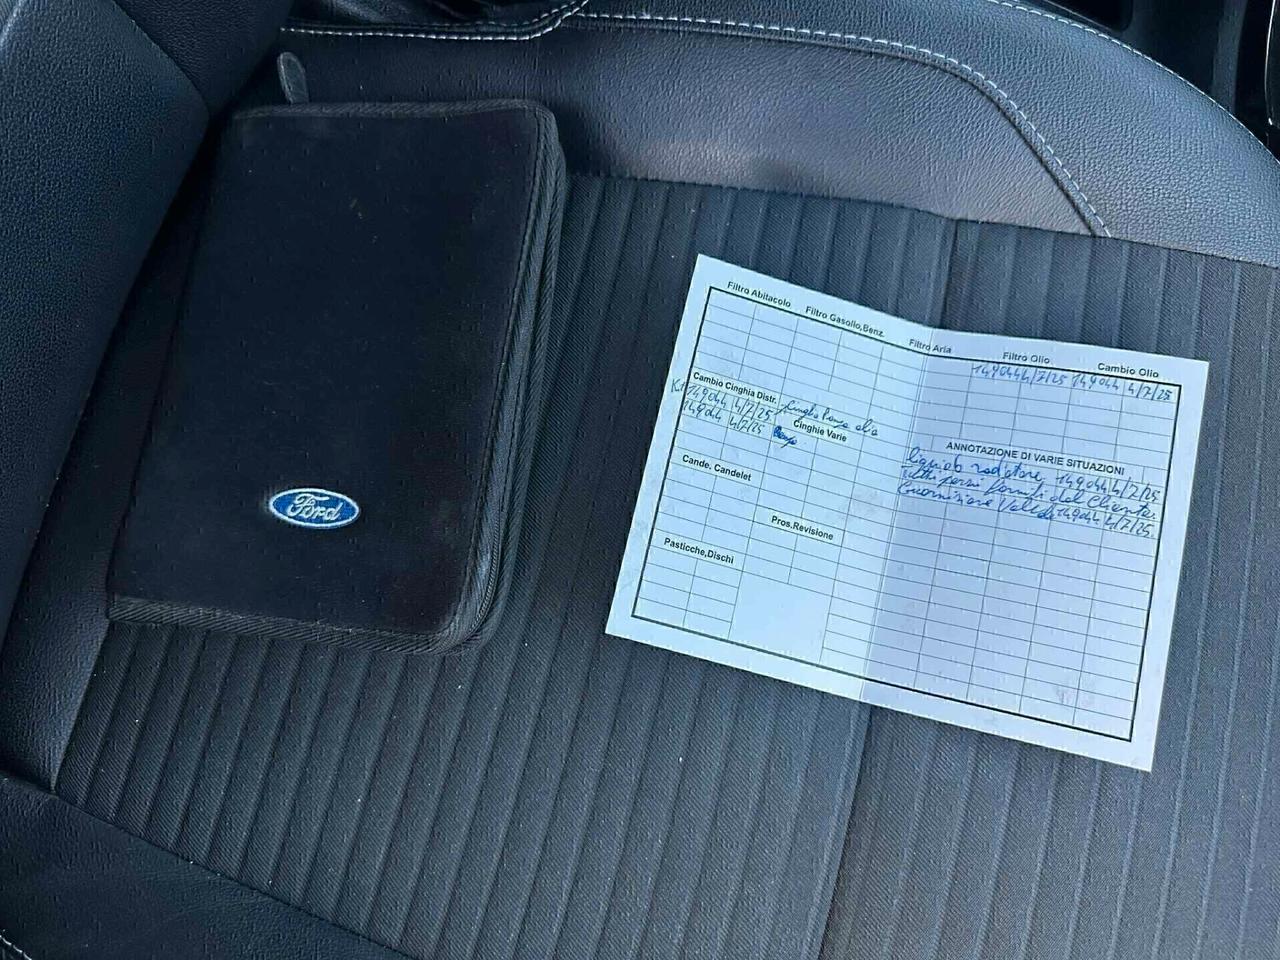 Ford
Filtro Abitacolo Filtro Gasolio,Benz. Filtro Aria Filtro Olio Cambio Olio
149044 4/7/25 149044 4/7/25
Cambio Cinghia Distr.
149044 4/7/25 Cinghia Pompa olio
149044 4/7/25
Cinghie Varie
ANNOTAZIONE DI VARIE SITUAZIONI
Liquido radiatore 149044 4/7/25
pezzi forniti dal Cliente
Guarnizione 149044 4/7/25.
Cande, Candelet
Pros,Revisione
Pasticche,Dischi